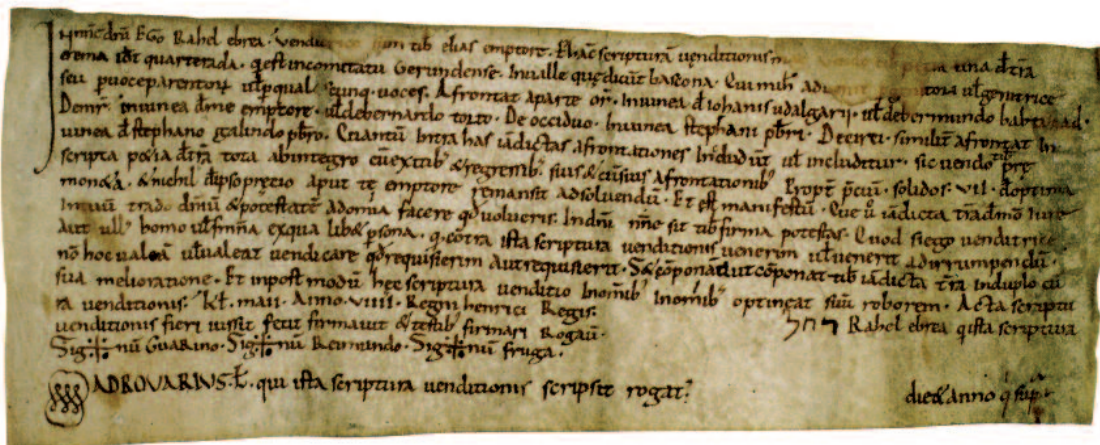 In nomine dñi Ego Rahel ebrea. vendi tib elias emptore. P hãc scripturã venditionis una d trã
erema idẽ quarterada. q̃ est in comitatu Gerundense. In valle quẽ dicũt bascona. Qui mih ad vł genitrice
seu p voce parentorũ vł p qual cunq voces. Afrontat a parte orĩ. In vinea d iohanis udalgarii. vł d bermundo
De mr̃. in vinea d me emptore. vł de bernardo torto. De occiduo. In vinea stephani pbr̃i. De circi. similit afrontat in
vinea d stephano galindo pbr̃o. Quantũ intra has iã dictas afrontationes includunt vł includitur. sic vendo tibi
scripta pecia d trã tota ab integro cũ exitib & regressib. suis & cũ suis afrontationib. Propt p̃ciũ. solidos. VII. d optima
moneta. & nichil d ipso precio aput te emptore remansit ad solvendũ. Et est manifestũ. Que ṽ iã dicta trã d meo iure
In tuũ trado dñiũ & potestatẽ ad omnia facere qd volueris. In dñi nñe sit tib firma potestas. Quod si ego venditrice
Aut ullus homo vł femina ex qua libet psona. q̃ cõtra ista scriptura venditionis venerim vł venerit ad irrumpendũ.
nõ hoc valeã vł valeat vendicare qd requisierim aut requisierit. Set cõponã aut cõponat tib iã dicta trã in duplo cũ
sua melioratione. Et in post modũ hec scriptura venditio in omnib in omnib optineat suũ roborem. Acta scriptu
ra venditionis. Kł. maii. Anno. VIIII. Regni henrici Regis. רחל Rahel ebrea q ista scriptura
venditionis fieri iussit fecit firmavit & testib firmari rogavi.
Sig+nũ Guarino. Sig+nũ Reimundo. Sig+nũ fruga.
ADROVARIUS. ł. qui ista scriptura venditionis scripsit rogat9 die & anno q̃ sup̃.